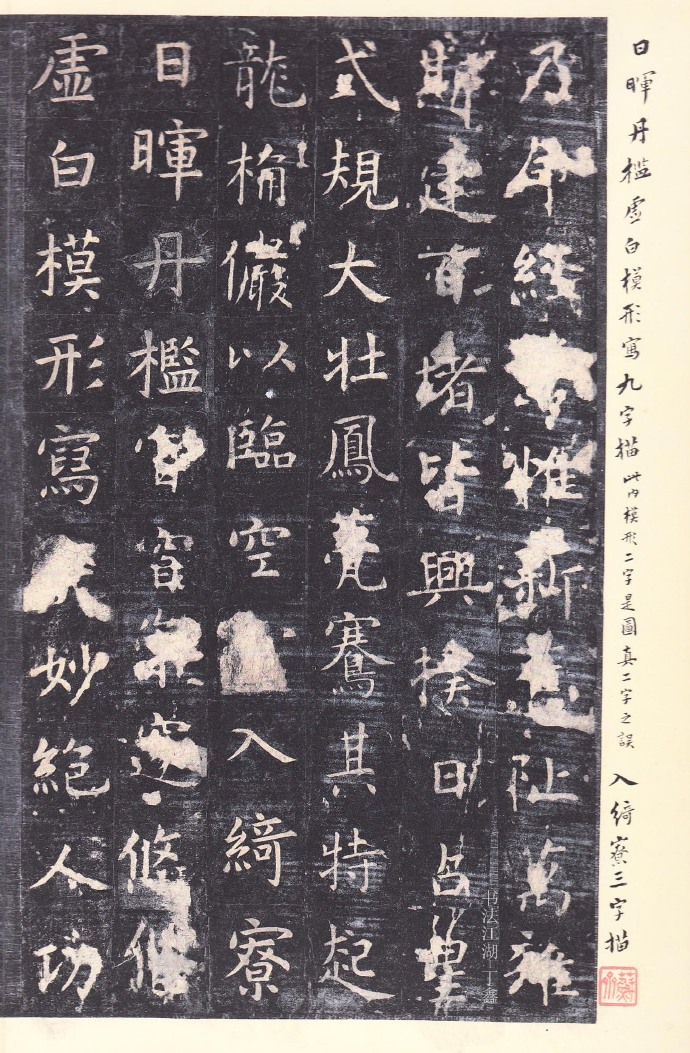 日暉丹檻虛白模形寫九字描此內模形二字是圖真二字之誤 入綺寮三字描
乃命經惟新舊阯萬雉
斯建百堵皆興揆日
式規大壯鳳甍騫其特起
龍桷儼以臨空入綺寮
日暉丹檻窅窅崇邃悠悠
虛白模形寫妙絕人功
书法江湖 丁鑫